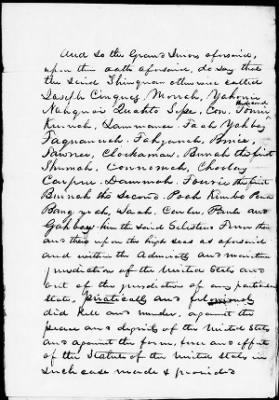 And so the Grand Jurors aforesaid,
upon their oath aforesaid, do say that
the said Shinquau otherwise called
Joseph Cinquez, Morrah, Yahome
Nahquoi Quahto Sesse, Con,
Kimnah, Lammane, Fach
Faquannah, Fahjanah,
Pawnee, Clockamaw, Burnah the first
Shumah, Conromah, Chooley
Carpree. Dammah. the first
Burnah the Second. Poch Kimbo
Bang yeh, Saah, and
him the said Celestino Ferrer then
and there upon the high seas as aforesaid
and within the Admiralty and maritime
jurisdiction of the United States and
out of the jurisdiction of any particular
state, piratically and feloniously
did kill and murder, against the
peace and dignity of the United States
and against the form, force and effect
of the Statute of the United States in
such case made & provided